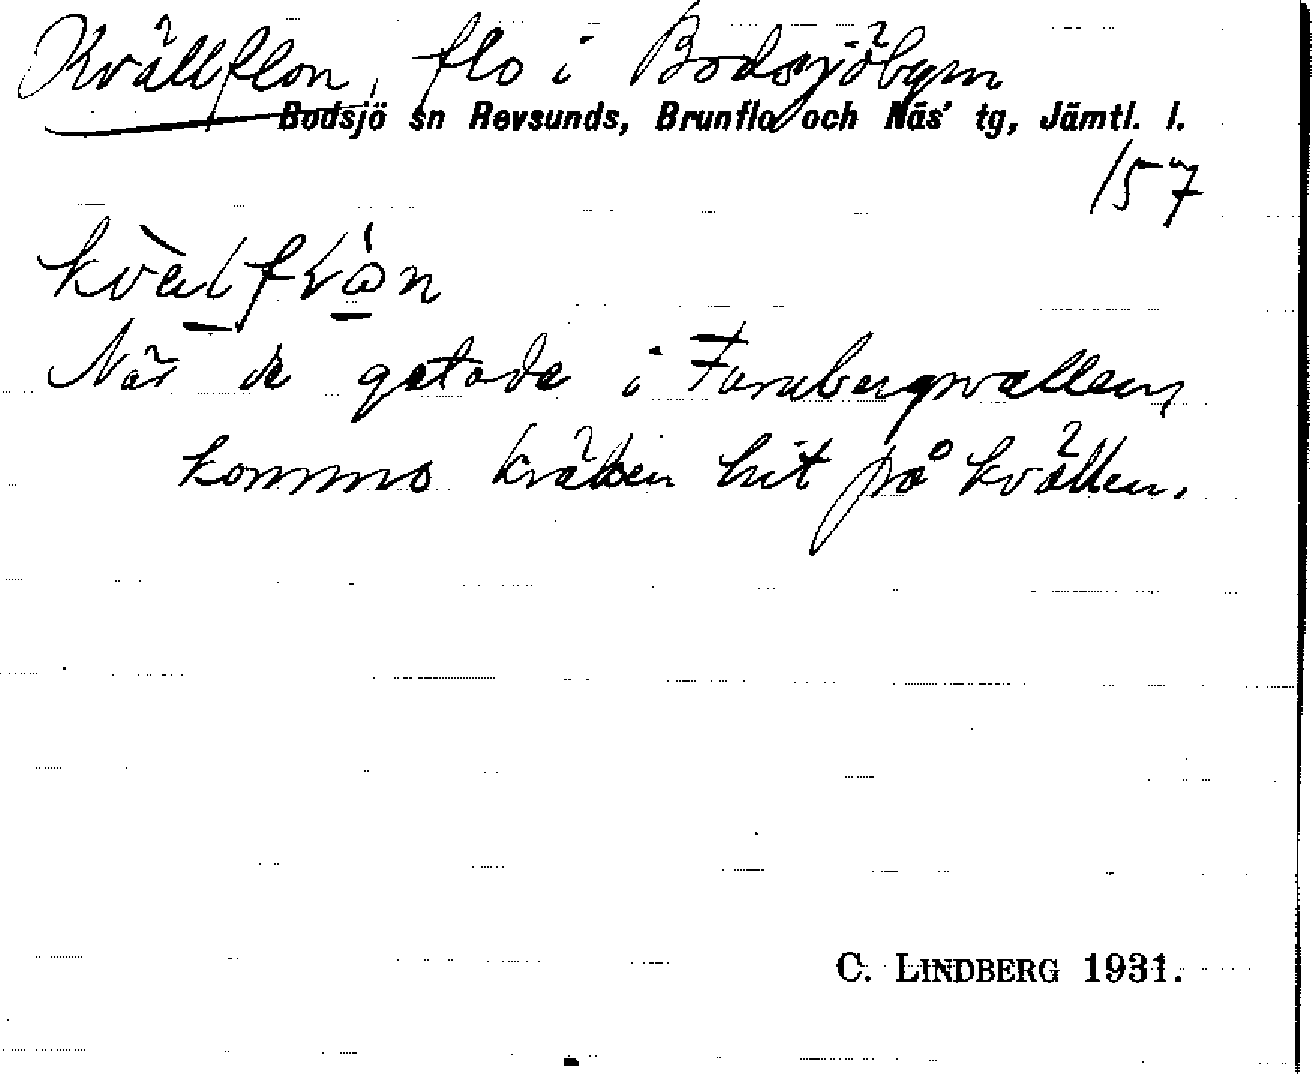 Kvällflon, flo i Bodsjöbyn
Bodsjö sn Revsunds, Brunflo och Näs' tg, Jämtl. l.
157
När de getade i Furubergsvallen,
kommo kräken hit på kvällen.
C. LINDBERG 1931.